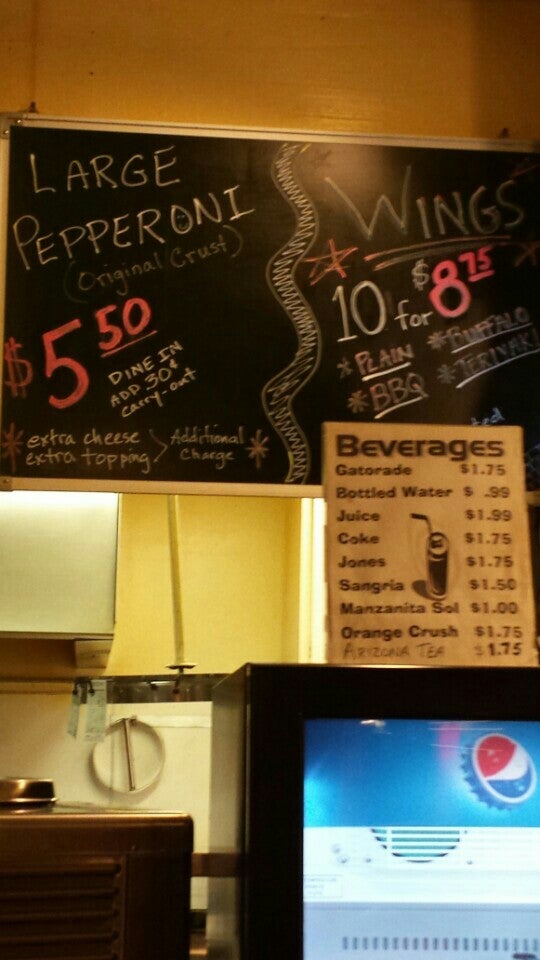 LARGE
PEPPERONI
(Original Crust)
$5.50
DINE IN
ADD .30¢
carry-out
extra cheese
extra topping
Additional
Charge
WINGS
10 for $8.75
* PLAIN
* BBQ
* BUFFALO
* TERIYAKI
Beverages
Gatorade $1.75
Bottled Water $ .99
Juice $1.99
Coke $1.75
Jones $1.75
Sangria $1.50
Manzanita Sol $1.00
Orange Crush $1.75
ARIZONA TEA $1.75